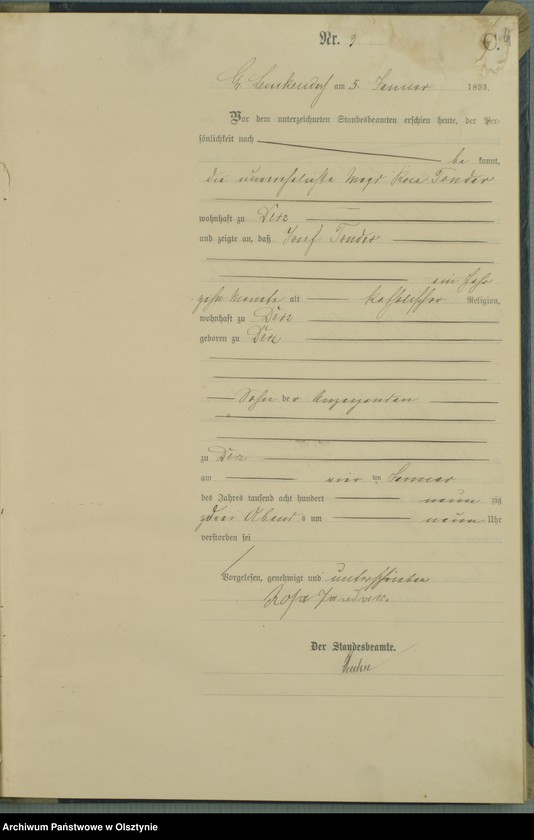 Nr. 3
C.
am 5. Januar 1893.
Vor dem unterzeichneten Standesbeamten erschien heute, der Per-
sönlichkeit nach
be kannt,
die unverehelichte Magd Rosa
wohnhaft zu Derz
und zeigte an, daß Josef
ein Jahr
zehn Monate alt katholischer Religion,
wohnhaft zu Derz
geboren zu Derz
Sohn der Anzeigenden
zu Derz
am vier ten Januar
des Jahres tausend acht hundert neun zig
drei Abend s um neun Uhr
verstorben sei
Vorgelesen, genehmigt und unterschrieben
Der Standesbeamte.
Archiwum Państwowe w Olsztynie